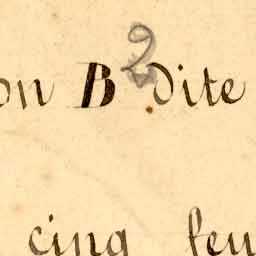 on B 2 dite
cinq feu